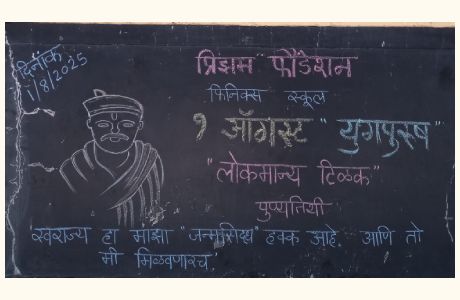 दिनांक
1/8/2025
प्रिझम फौंडेशन
फिनिक्स स्कूल
१ ऑगस्ट "युगपुरुष"
"लोकमान्य टिळक"
पुण्यतिथी
स्वराज्य हा माझा "जन्मसिद्ध" हक्क आहे. आणि तो
मी मिळवणारच.'